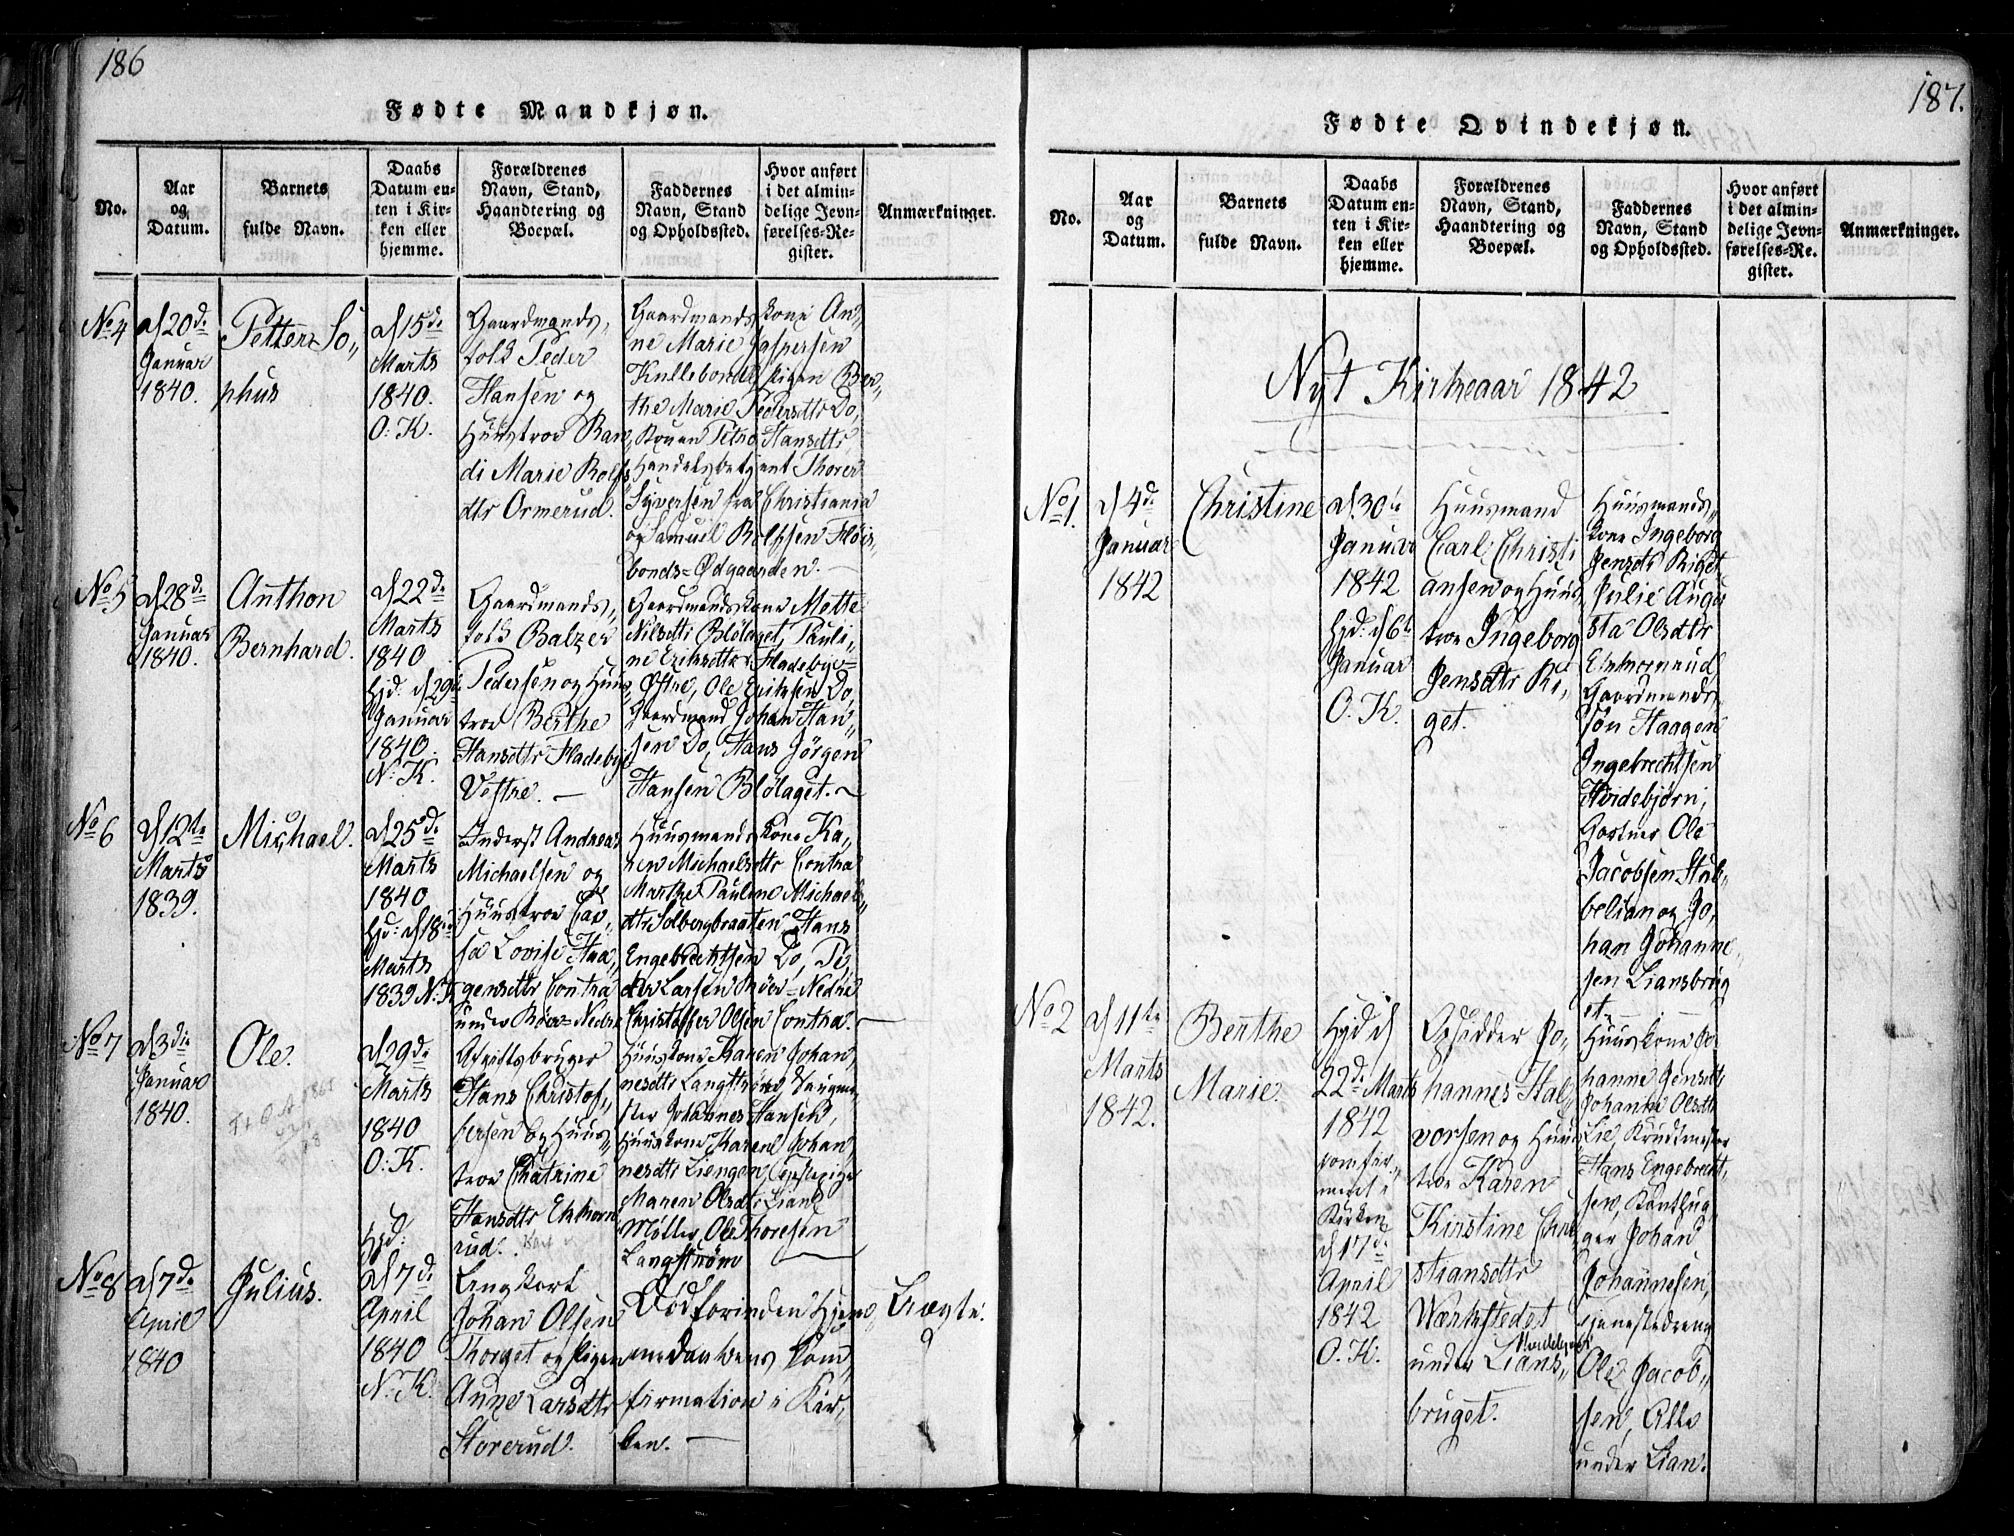 186
Fødte Mandkjøn.
No.
Aar
og
Datum.
Barnets
fulde Navn.
Daabs
Datum en-
ten i Kir-
ken eller
hjemme.
Forældrenes
Navn, Stand,
Haandtering og
Boepæl.
Faddernes
Navn, Stand
og Opholdssted.
Hvor anført
i det almin-
delige Jevn-
førelses-Re-
gister.
Anmærkninger.
No 4
d 20de
Januar
1840.
Petter So„
phus
d 15de
Marts
1840.
O. K.
Gaardmands„
folk Peder
Hansen og
Huustroe Ran„
di Marie Rolfs„
dtr Ormerud.
Gaardmandskone An„
ne Marie Jaspersen
Kullebonde, Pigen Ber„
the Marie Pedersdtr Do,
Konen Petro Hansdtr,
Handelsbetjent Thorer
Syversen fra Christiania
og Samuel Rolfsen Fløis„
bonds=Ødgaarden. —
No 5
d 28de
Januar
1840.
Anthon
Bernhard.
d 22de
Marts
1840
Hjd: d 29de
Januar
1840.
N. K.
Gaardmands„
folk Balzer
Pedersen og Huus„
troe Berthe
Hansdtr Fladebye
Vestre. —
Gaardmandskone Mette
Nilsdtr Blølaget, Pauli„
ne Eriksdtr Fladebye=
Østre, Ole Eriksen Do,
Gaardmand Johan Han„
sen Do, Hans Jørgen
Hansen Blølaget. —
No 6
d 12te
Marts
1839.
Michael.
d 25de
Marts
1840
Hjd: d 18de
Marts
1839 N. K.
Inderst Andreas
Michaelsen og
Huustroe
sa Lovise Haa„
gensdtr Contra
under Røer=Nedre
Huusmandskone Ka„
ren Michaelsdtr Contra
Marthe Pauline Michaels„
dtr Solbergbraaten, Hans
Engebrechtsen Do, Pe„
der Larsen Røer=Nedre
Christoffer Olsen Contra. —
No 7
d 3die
Januar
1840.
Ole.
d 29de
Marts
1840
O. K.
Hans Christof„
fersen og Huus„
troe Chatrine
Hansdtr Ekhorn„
rud.
Huuskone Karen Johan„
nesdtr Langstrøm,
Johannes Hansen,
Huuskone Karen Johan„
nesdtr Liengen,
Maren Olsdtr Lians
Møller, Ole Thoresen
Langstrøm
No 8
d 7de
April
1840
Julius.
Hjd:
d 7de
April
1840
N. K.
Langkort
Johan Olsen
Thorget og Pigen
Anne Larsdtr
Storerud.
Død forinden Hjem„
medaabens Kon„
firmation i Kir„
ken. —
Uægte.
187.
Fødte Qvindekjøn.
No.
Aar
og
Datum.
Barnets
fulde Navn.
Daabs
Datum en-
ten i Kir-
ken eller
hjemme.
Forældrenes
Navn, Stand,
Haandtering og
Boepæl.
Faddernes
Navn, Stand
og Opholdssted.
Hvor anført
i det almin-
delige Jevn-
førelses-Re-
gister.
Anmærkninger.
Nyt Kirkeaar 1842
No 1.
d 4de
Januar
1842
Christine
d. 30te
Januar
1842
Hjd: d 6te
Januar
O. K.
Huusmand
Carl Christi
ansen og Huus„
troe Ingeborg
Jensdtr Ri„
get.
Huusmands„
kone Ingeborg
Jensdtr Riget
Julie Augu
sta Olsdtr
Ekhornrud
Gaardmands„
søn Haagen
Ingebrechtsen
Hvidebjørn,
Ole
Jacobsen Stub„
belian og Jo„
han Johanne„
sen Liansbrug„
et. —
No 2
d 11te
Marts
1842.
Berthe
Marie
Hjd d
22de Marts
1842
confir„
meret i
Kirken
d 17de
April
1842
O. K.
Opsidder Jo„
hannes Hal„
vorsen og Huus„
troe Karen
Kirstine Chri„
stiansdtr
Værkstedet
under Lians„
bruget.
Huuskone Jo„
hanne Jensdtr,
Johanne Olsdtr
Lie, Krudtmester
Hans Engebrecht„
sen,
ger Johan
Johannesen,
Tjenestedreng
Ole Jacob„
sen, Alle
under Lian.